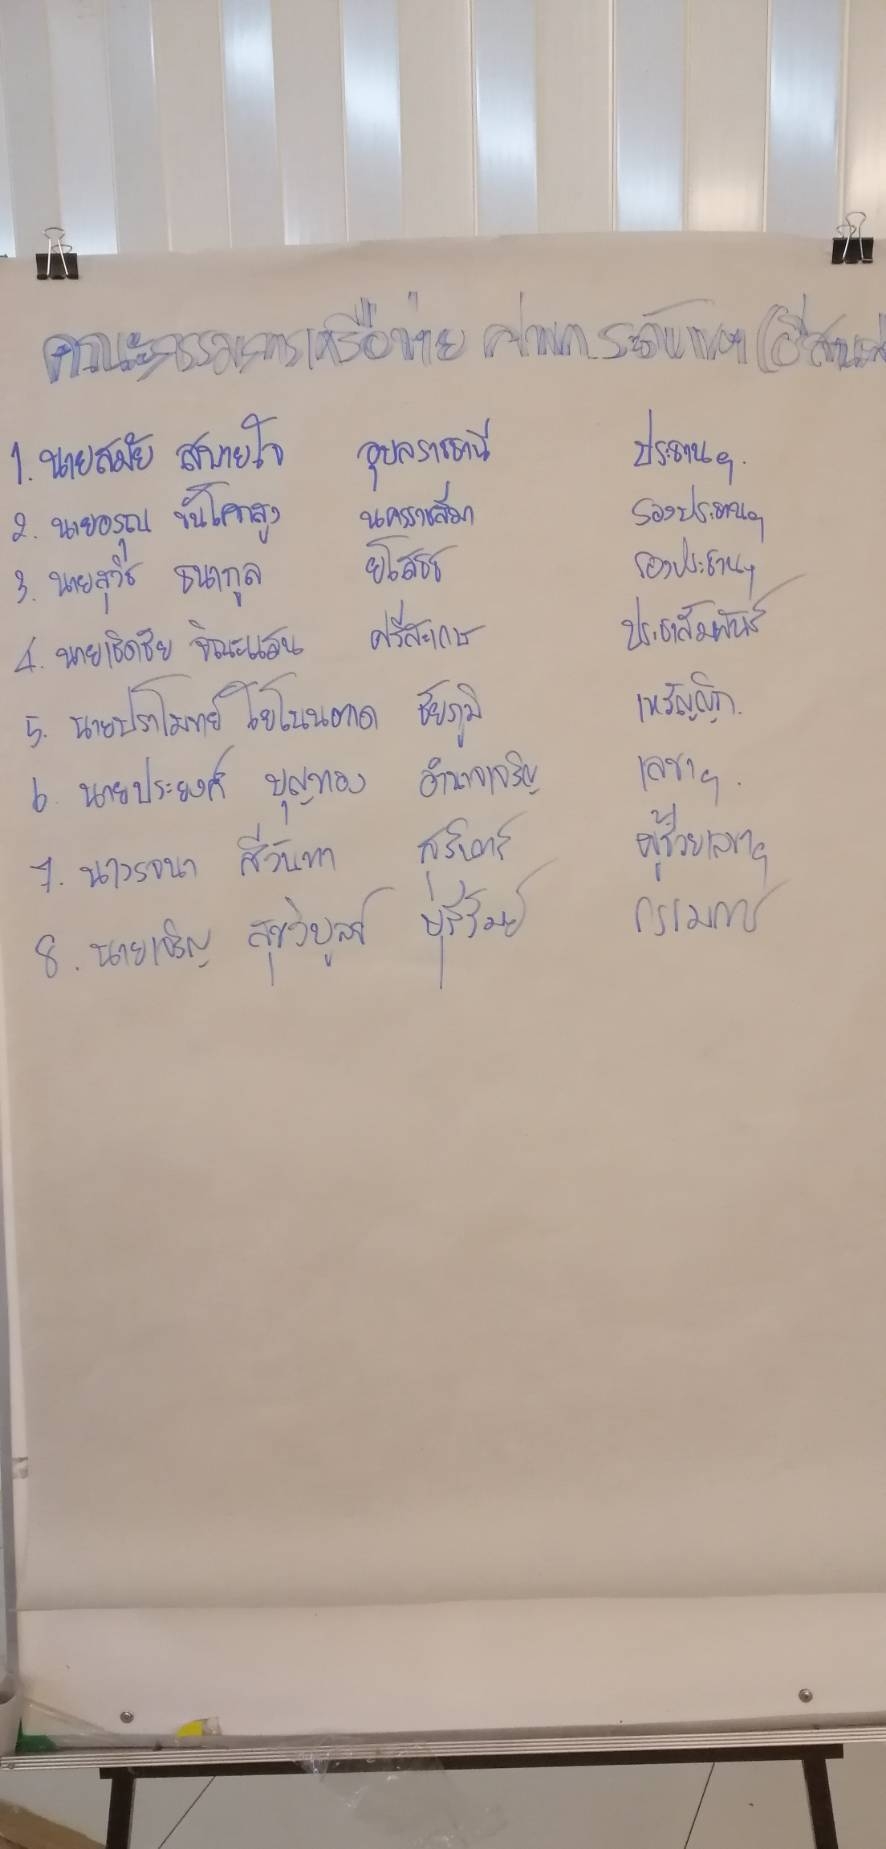 คณะกรรมการเครือข่าย ระดับภาค (อีสาน
1. นายสมัย สบายใจ อุบลราชธานี ประธานฯ.
2. นายอรุณ ขันโคกสูง นครราชสีมา รองประธานฯ
3. นายสุวิช ธนากูล ยโสธร รองประธานฯ
4. นายเชิดชัย จิณะแสน ศรีสะเกษ ประชาสัมพันธ์
5. นายปราโมทย์ ชัยภูมิ เหรัญญิก.
6. นายประยงค์ บุญทอง อำนาจเจริญ เลขาฯ.
7. รจนา สีวันทา สุรินทร์ ผู้ช่วยเลขาฯ
8. นายเจริญ สุขวิบูลย์ บุรีรัมย์ กรรมการ